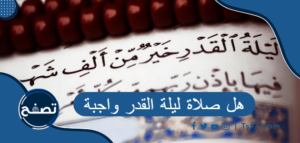 لَيْلَةُ الْقَدْرِ خَيْرٌ مِّنْ أَلْفِ شَهْ
فِيهَا بِإِذْنِ رَبِّ
تصفح
هل صلاة ليلة القدر واجبة